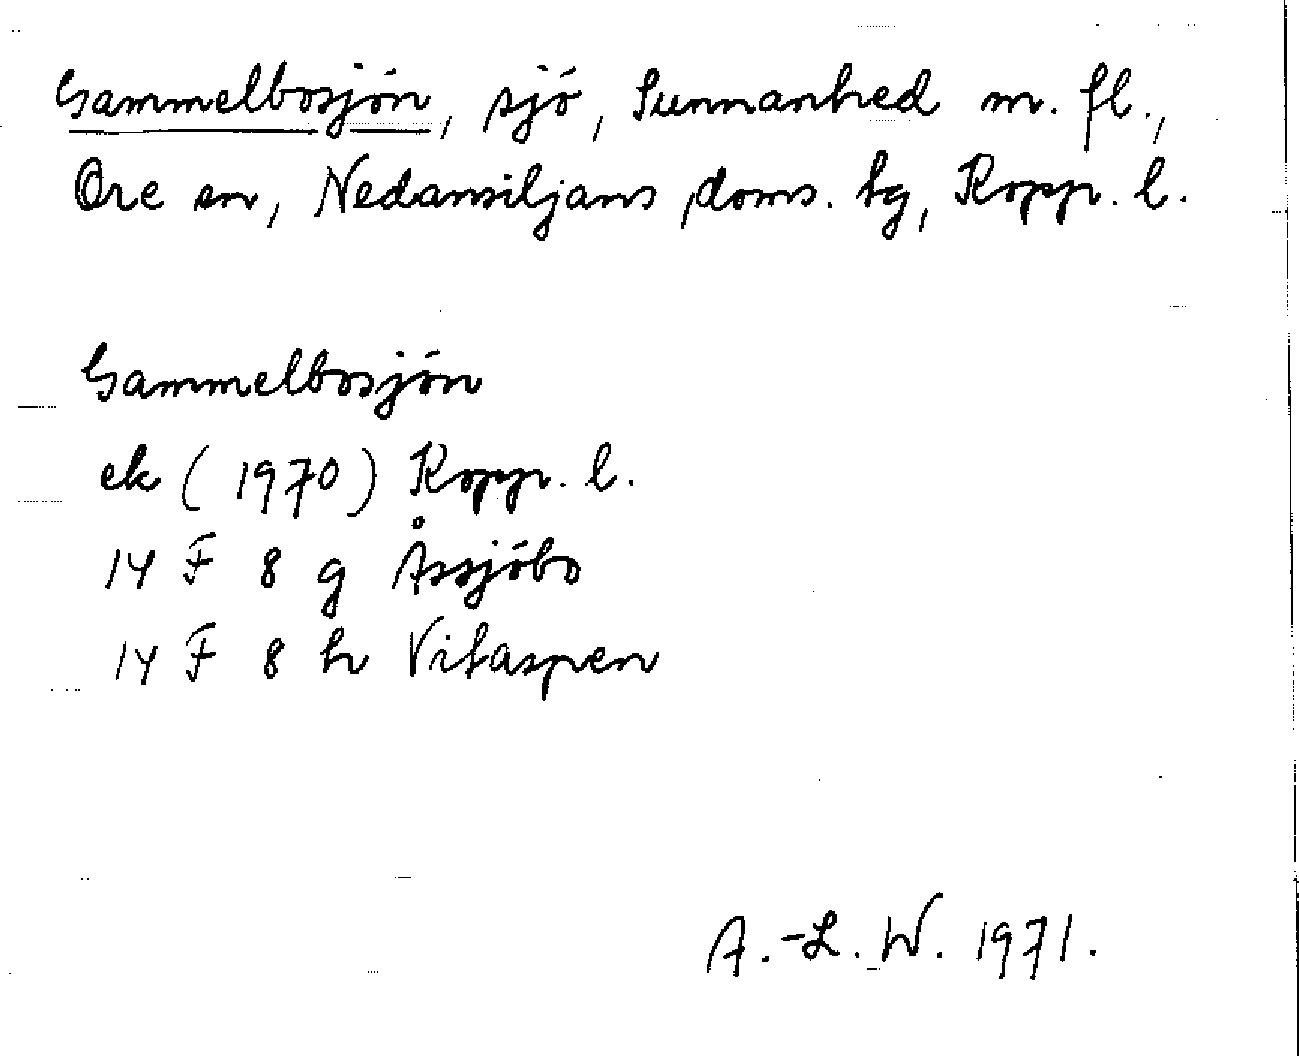 Gammelbosjön, sjö, Sunnanhed m. fl.,
Ore sn, Nedansiljans doms. tg, Kopp. l.
Gammelbosjön
ek (1970) Kopp. l.
14 F 8 g Åssjöbo
14 F 8 h Vitaspen
A.-L. W. 1971.